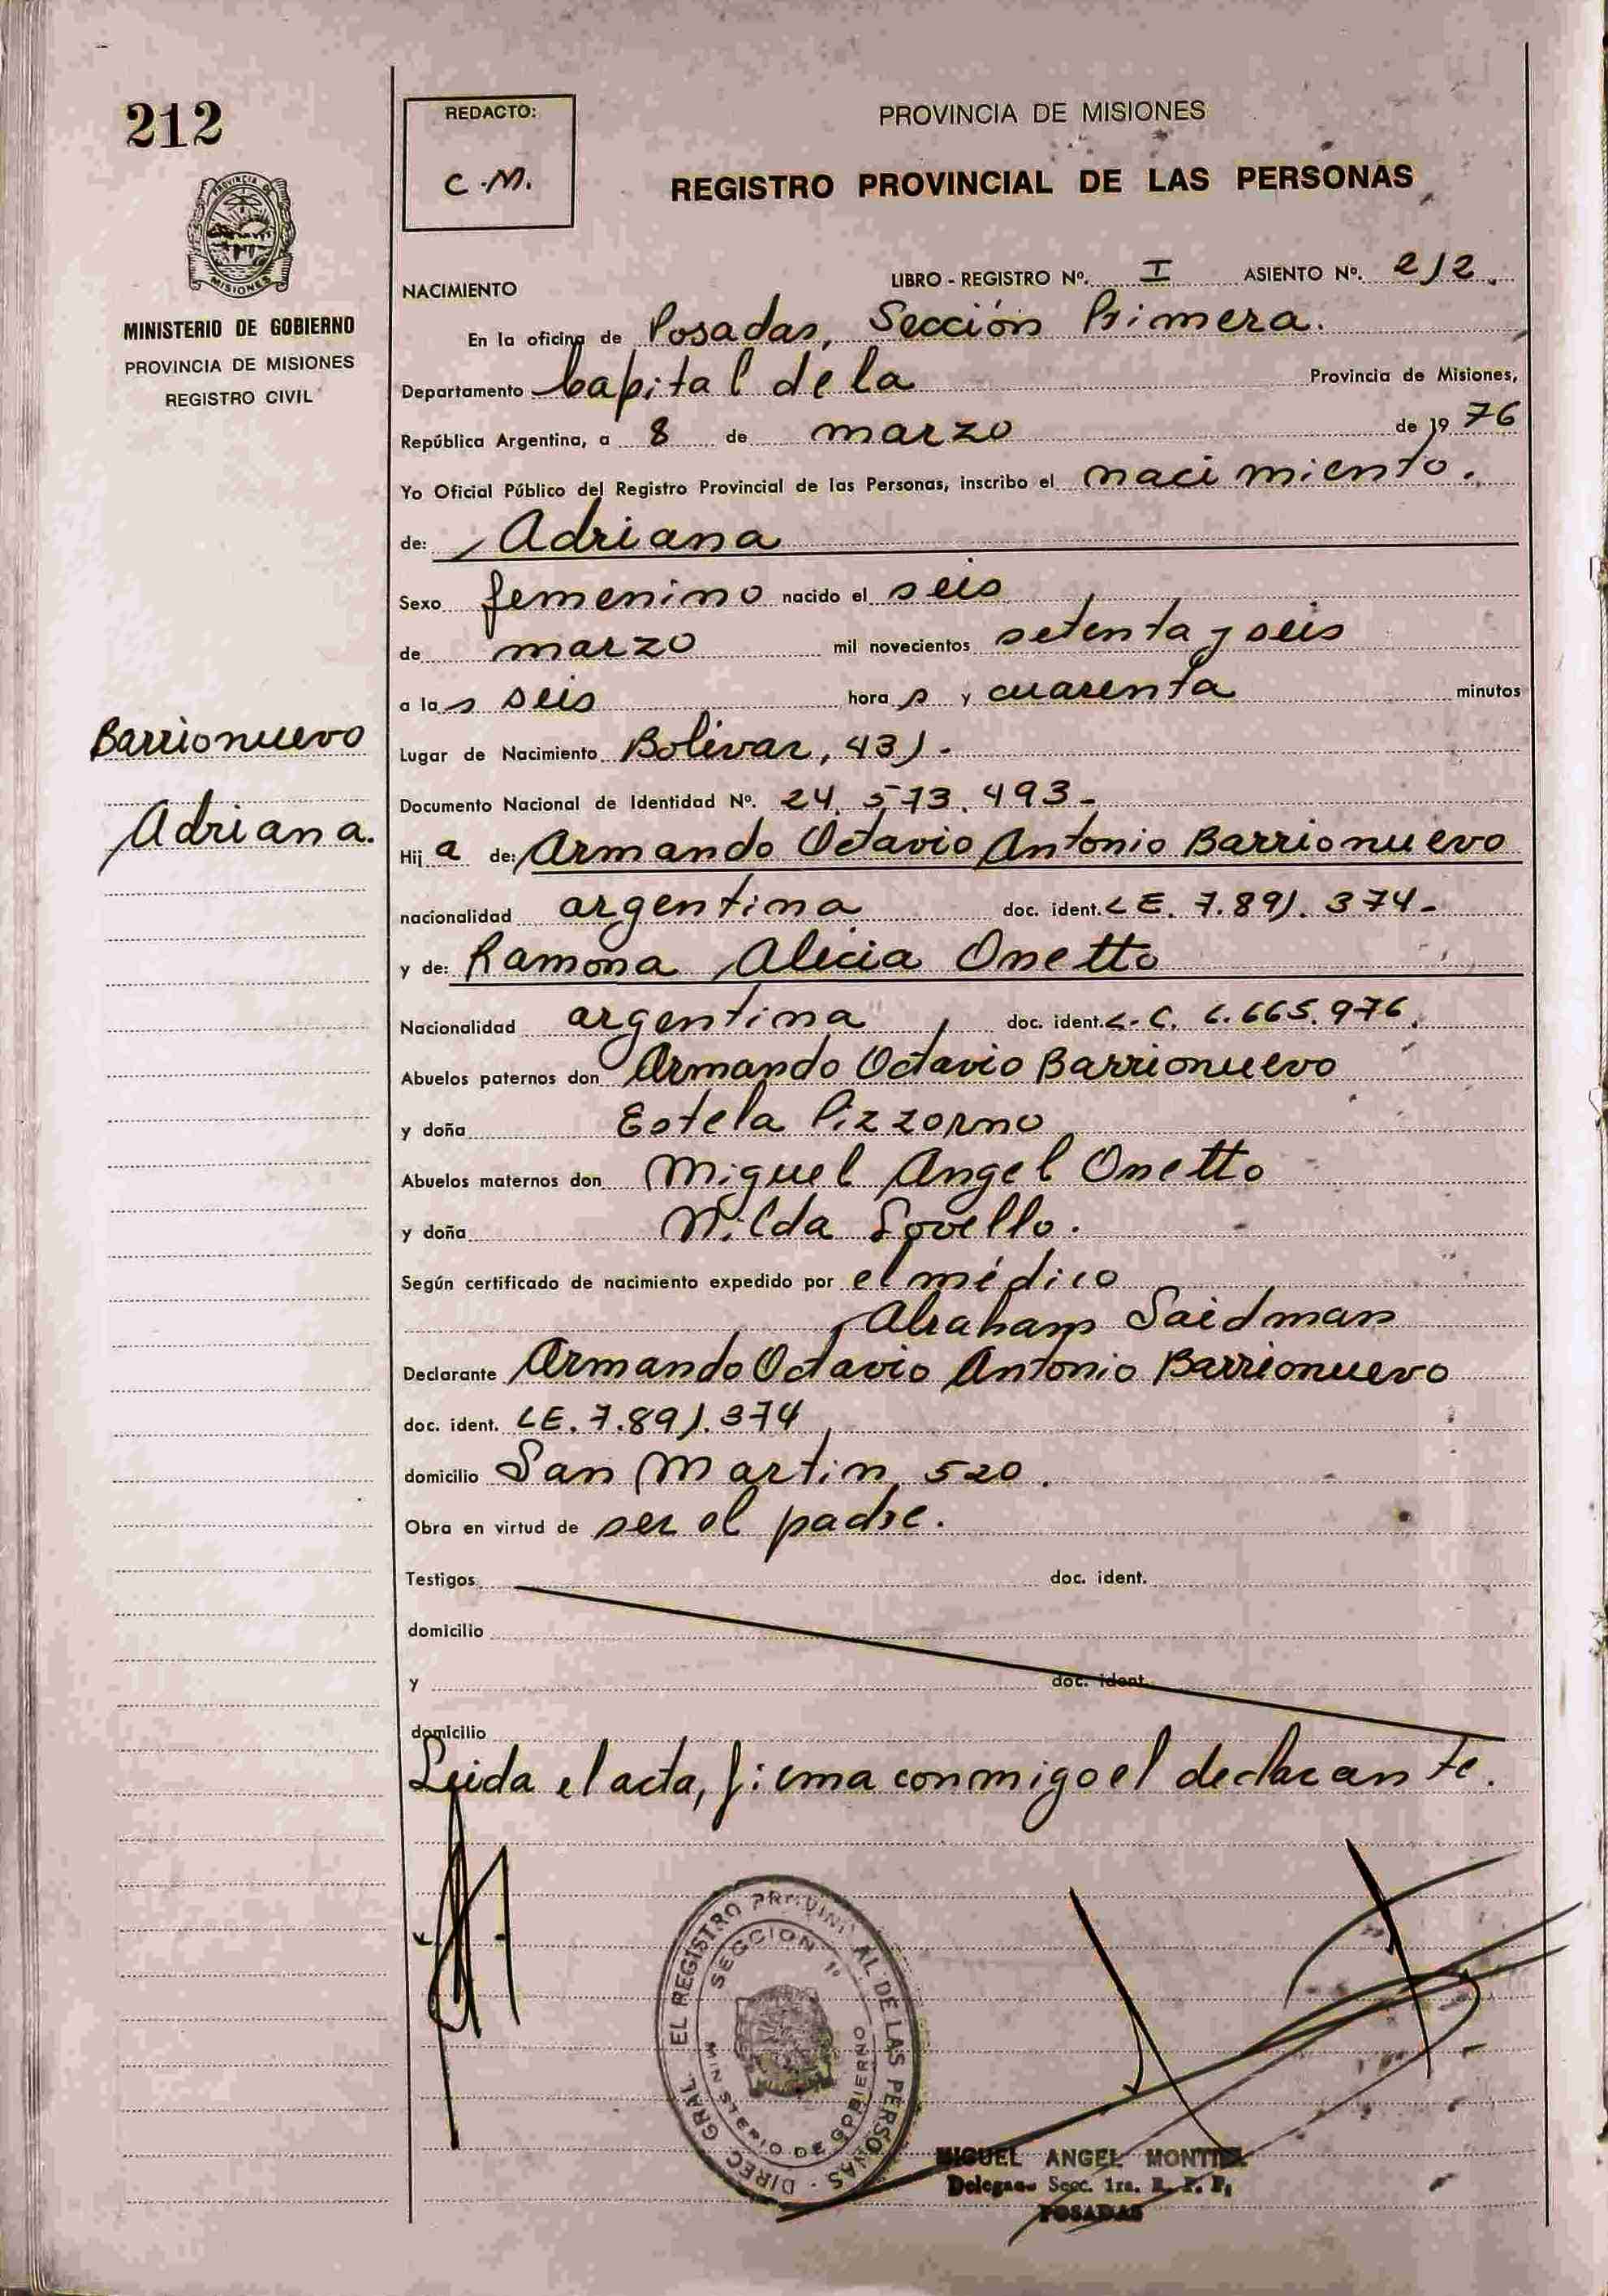 212
REDACTO:
C.M.
PROVINCIA DE MISIONES
REGISTRO PROVINCIAL DE LAS PERSONAS
PROVINCIA DE
MISIONES
MINISTERIO DE GOBIERNO
PROVINCIA DE MISIONES
REGISTRO CIVIL
Barrionuevo
Adriana.
NACIMIENTO
LIBRO - REGISTRO Nº. I ASIENTO Nº. 212.
En la oficina de Posadas, Sección Primera.
Departamento Capital de la Provincia de Misiones,
República Argentina, a 8 de marzo de 1976
Yo Oficial Público del Registro Provincial de las Personas, inscribo el nacimiento.
de: Adriana
Sexo femenino nacido el seis
de marzo mil novecientos setenta y seis
a las seis horas y cuarenta minutos
Lugar de Nacimiento Bolívar, 431.-
Documento Nacional de Identidad Nº. 24.573.493-
Hija de: Armando Octavio Antonio Barrionuevo
nacionalidad argentina doc. ident. LE. 7.891.374-
y de: Ramona Alicia Onetto
Nacionalidad argentina, doc. ident. L.C. 6.665.976.
Abuelos paternos don Armando Octavio Barrionuevo
y doña Estela Pizzorno
Abuelos maternos don Miguel Angel Onetto
y doña Nilda
Según certificado de nacimiento expedido por el médico
Abraham Saidman
Declarante Armando Octavio Antonio Barrionuevo
doc. ident. LE. 7.891.374
domicilio San Martin, 520.
Obra en virtud de ser el padre.
Testigos doc. ident.
domicilio
y doc. ident.
domicilio
Leida el acta, firma conmigo el declarante.
DIREC. GRAL. EL REGISTRO PROVINCIAL DE LAS PERSONAS
SECCION 1ª
MINISTERIO DE GOBIERNO
MIGUEL ANGEL MONTIEL
Delegado Secc. 1ra. R. P. P.
POSADAS